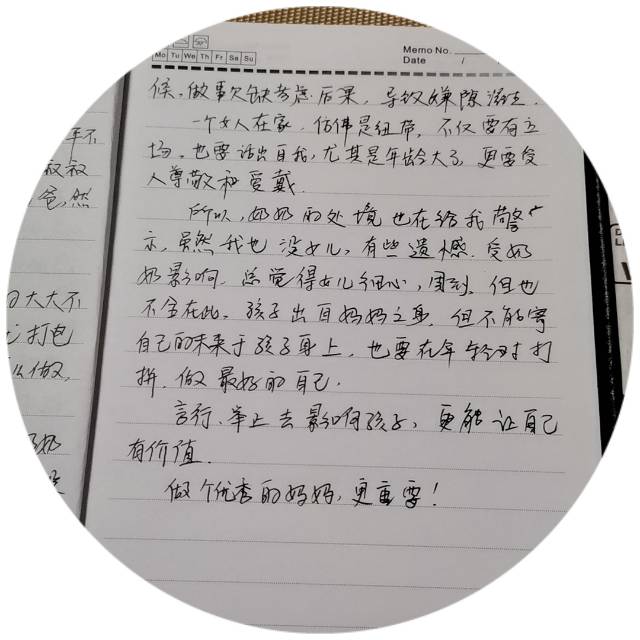 Mo Tu We Th Fr Sa Su
Memo No.
Date / /
候。做事欠缺考虑后果，导致嫌隙滋生。
一个女人在家，仿佛是纽带，不仅要有立
场。也要活出自我，尤其是年龄大了，更要受
人尊敬和爱戴。
所以，奶奶的处境也在给我警
示，虽然我也没女儿，有些遗憾。受奶
奶影响，总觉得女儿细心，周到，但也
不全在此。孩子出自妈妈之身，但不能寄
自己的未来于孩子身上，也要在年轻时打
拼，做最好的自己，
言行、举止去影响孩子，更能让自己
有价值。
做个优秀的妈妈，更重要！
年不
叔叔
爸，然
大大不
打包
么做，
奶